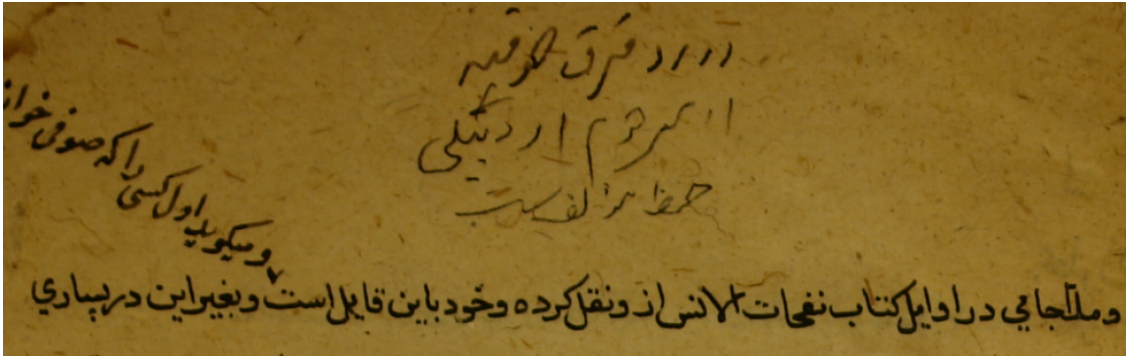 در رد فرق صوفیه
از مرحوم اردبیلی
و میکوید اول کسی را که صوفی خواند
و ملاجامي در اوایل کتاب نفحات الانس از و نقل کرده و خود باین قایل است و بغیر این در بسیاري